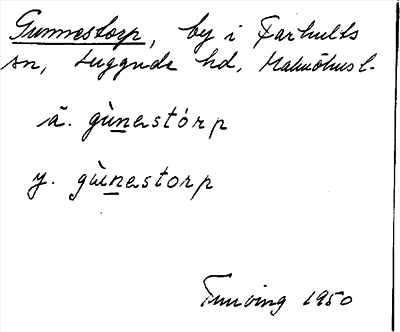 Gunnestorp, by i Farhults
sn, Luggude hd, Malmöhus l.
ä. gùnastórp
y. gùnastorp
1950